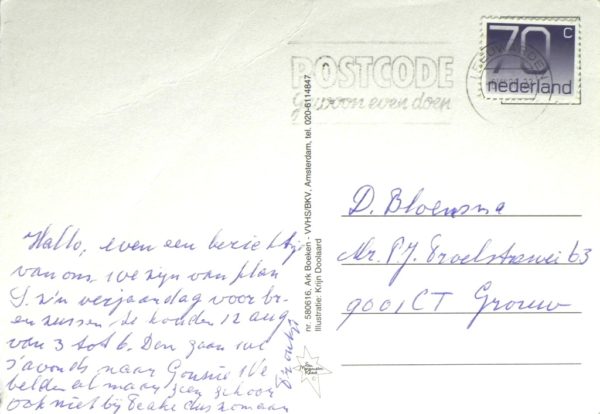 70 c
nederland
LEEUWARDEN
POSTCODE
gewoon even doen
nr. 580616, Ark Boeken - VVHS/BKV, Amsterdam, tel. 020-6114847.
Illustratie: Krijn Doolaard
D. Bloemsma
Mr. P.J. Troelstrawei 63
9001 CT Grouw
Hallo, even een berichtje
van ons. we zijn van plan
z'n verjaardag voor br-
en zussen te houden 12 aug
van 3 tot 6. Dan gaan we
s'avonds naar We
belden al maar geen gehoor
ook niet bij dus